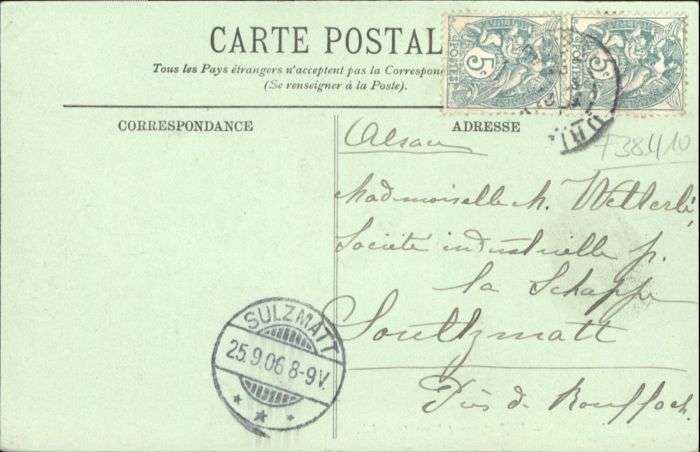 CARTE POSTAL
Tous les Pays étrangers n'acceptent pas la Correspon
(Se renseigner à la Poste).
CORRESPONDANCE
ADRESSE
5c
POSTES
5c
F38410
Alsace
Mademoiselle M. Wetterlé,
Société industrielle p.
la Schappe
Soultzmatt
Près de Rouffach.
SULZMATT
25.9.06 8-9V.